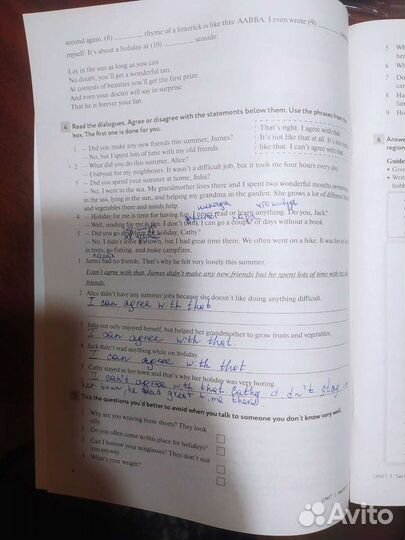 second again. (8) ________ rhyme of a limerick is like this: AABBA. I even wrote (9) ________
myself. It's about a holiday at (10) ________ seaside:
Lay in the sun as long as you can
No doubt, you'll get a wonderful tan.
At contests of beauties you'll get the first prize
And even your doctor will say in surprise
That he is forever your fan.
4 Read the dialogues. Agree or disagree with the statements below them. Use the phrases from the
box. The first one is done for you.
That's right. I agree with that
It's not like that at all. It's not
like that. I can't agree with that
1 – Did you make any new friends this summer, James?
– No, but I spent lots of time with my old friends.
2 – What did you do this summer, Alice?
– I babysat for my neighbours. It wasn't a difficult job, but it took me four hours every day.
3 – Did you spend your summer at home, Julia?
– No, I went to the sea. My grandmother lives there and I spent two wonderful months
in the sea, lying in the sun, and helping my grandma in the garden. She grows a lot of different
and vegetables there and needs help.
4 – Holiday for me is time for having fun read or learn anything. Do you, Jack?
– Well, reading for me is fun. I don't think I can go a couple of days without a book.
5 – Did you go holiday, Cathy?
– No, I didn't leave town, but I had great time there. We often went on a hike. It was fun to
in tents, go fishing, and make campfires.
1 James had no friends. That's why he felt very lonely this summer.
I can't agree with that. James didn't make any new friends but he spent lots of time with
friends.
2 Alice didn't have any summer jobs because she doesn't like doing anything difficult.
I can agree with that
3 Julia not only enjoyed herself, but helped her grandmother to grow fruits and vegetables.
I can agree with that.
4 Jack didn't read anything while on holiday.
I can agree with that
5 Cathy stayed in her town and that's why her holiday was very boring.
I can't agree with that Cathy didn't stay
her town, he great time there)
Tick the questions you'd better to avoid when you talk to someone you don't know very well.
1 Why are you wearing these shorts? They look
silly.
2 Do you often come to this place for holidays?
3 Can I borrow your sunglasses? They don't suit
you anyway.
4 What's your weight?
6
regio
Guide
UNIT 1
Avito